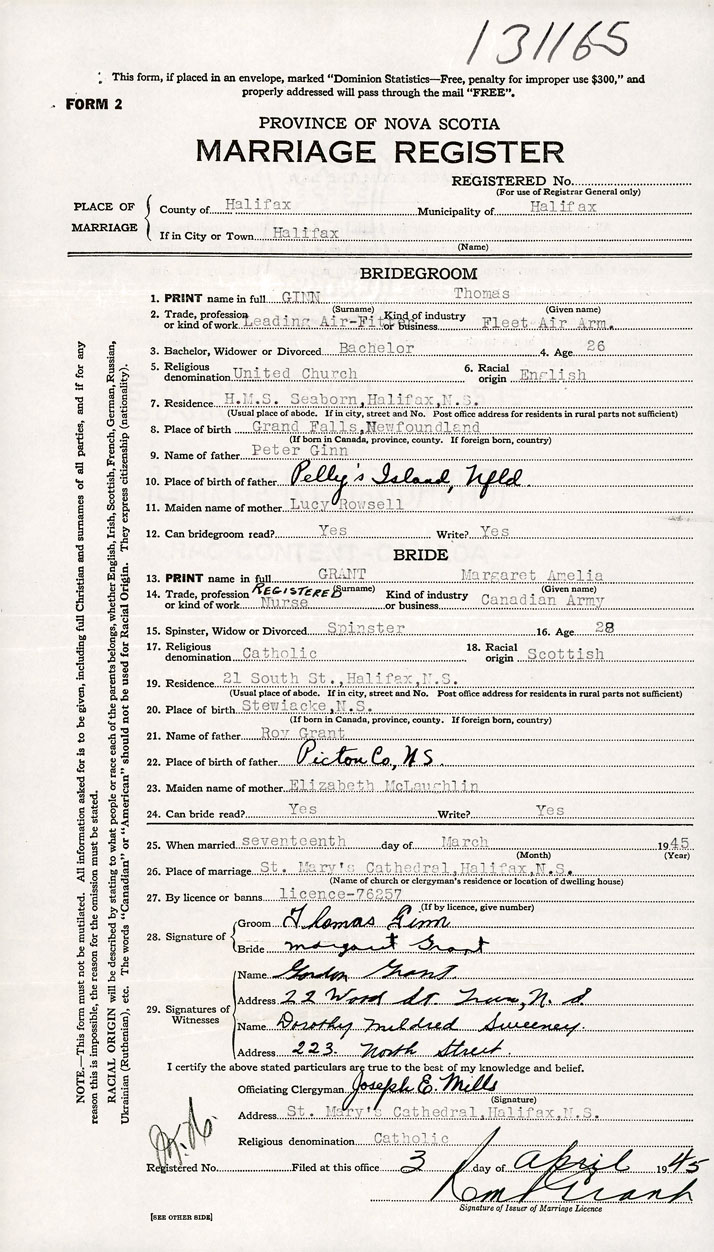 131165
This form, if placed in an envelope, marked "Dominion Statistics—Free, penalty for improper use $300," and
properly addressed will pass through the mail "FREE".
FORM 2
PROVINCE OF NOVA SCOTIA
MARRIAGE REGISTER
REGISTERED No.
(For use of Registrar General only)
PLACE OF MARRIAGE
County of Halifax Municipality of Halifax
If in City or Town Halifax
(Name)
BRIDEGROOM
1. PRINT name in full GINN Thomas
(Surname) (Given name)
2. Trade, profession or kind of work Leading Air-Fitter Kind of industry or business Fleet Air Arm.
3. Bachelor, Widower or Divorced Bachelor 4. Age 26
5. Religious denomination United Church 6. Racial origin English
7. Residence H.M.S. Seaborn, Halifax, N.S.
(Usual place of abode. If in city, street and No. Post office address for residents in rural parts not sufficient)
8. Place of birth Grand Falls, Newfoundland
(If born in Canada, province, county. If foreign born, country)
9. Name of father Peter Ginn
10. Place of birth of father Pelly's Island, Nfld.
11. Maiden name of mother Lucy Rowsell
12. Can bridegroom read? Yes Write? Yes
BRIDE
13. PRINT name in full GRANT Margaret Amelia
(Surname) (Given name)
14. Trade, profession or kind of work REGISTERED Nurse Kind of industry or business Canadian Army
15. Spinster, Widow or Divorced Spinster 16. Age 28
17. Religious denomination Catholic 18. Racial origin Scottish
19. Residence 21 South St., Halifax, N.S.
(Usual place of abode. If in city, street and No. Post office address for residents in rural parts not sufficient)
20. Place of birth Stewiacke, N.S.
(If born in Canada, province, county. If foreign born, country)
21. Name of father Roy Grant
22. Place of birth of father Picton Co, N S.
23. Maiden name of mother Elizabeth McLaughlin
24. Can bride read? Yes Write? Yes
25. When married seventeenth day of March 1945
(Month) (Year)
26. Place of marriage St. Mary's Cathedral, Halifax, N.S.
(Name of church or clergyman's residence or location of dwelling house)
27. By licence or banns licence-76257
(If by licence, give number)
28. Signature of
Groom Thomas Ginn
Bride Margaret Grant
29. Signatures of Witnesses
Name Gordon Grant
Address 22 Wood St. Truro, N. S
Name Dorothy Mildred Sweeney
Address 223 North Street.
I certify the above stated particulars are true to the best of my knowledge and belief.
Officiating Clergyman Joseph E. Mills
(Signature)
Address St. Mary's Cathedral, Halifax, N.S.
Religious denomination Catholic
Registered No. Filed at this office 3 day of April 1945
Signature of Issuer of Marriage Licence
[SEE OTHER SIDE]
NOTE.—This form must not be mutilated. All information asked for is to be given, including full Christian and surnames of all parties, and if for any
reason this is impossible, the reason for the omission must be stated.
RACIAL ORIGIN will be described by stating to what people or race each of the parents belongs, whether English, Irish, Scottish, French, German, Russian,
Ukrainian (Ruthenian), etc. The words "Canadian" or "American" should not be used for Racial Origin. They express citizenship (nationality).